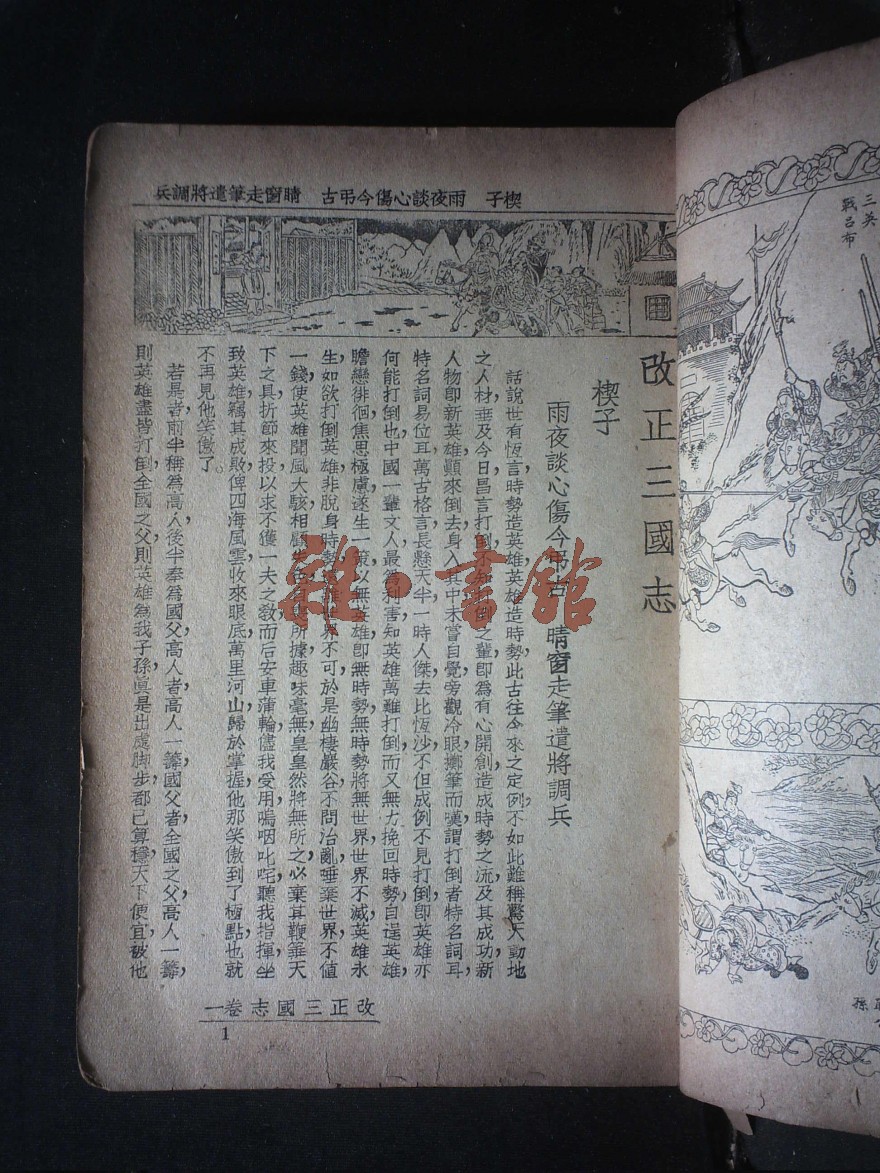 楔子　雨夜談心傷今弔古　晴窗走筆遣將調兵
改正三國志
楔子
雨夜談心傷今弔古　晴窗走筆遣將調兵
話說世有恆言時勢造英雄英雄造時勢此古往今來之定例不如此難稱驚天動地
之人材垂及今日昌言打倒不知打倒之輩卽為有心開創造成時勢之流及其成功新
人物卽新英雄顚來倒去身入其中未嘗自覺旁觀冷眼擲筆而嘆謂打倒者特名詞耳
特名詞易位耳萬古格言長懸天半一時人傑去比恆沙不但成例不見打倒卽英雄亦
何能打倒也中國一輩文人最爲利害知英雄萬難打倒而又無力挽回時勢自逞英雄，
瞻戀徘徊焦思極慮遂生一策以無英雄卽無時勢無時勢將無世界世界不滅英雄永
生，如欲打倒英雄非脫身時勢世界不可於是幽棲巖谷不問治亂唾棄世界不値
一錢使英雄聞風大駭相顧失色所據趣味毫無皇皇然將無所之必棄其鞭箠天
下之具折節來投以求不獲一夫之敎而后安車蒲輪儘我受用嗚咽叱咤聽我指揮坐
致英雄竊其成敗俾四海風雲收來眼底萬里河山歸於掌握他那笑傲到了極點也就
不再見他笑傲了。
若是者前半稱爲高人後半奉為國父高人者高人一籌國父者全國之父高人一籌，
則英雄盡皆打倒全國之父則英雄為我子孫眞是出處脚步都已算穩天下便宜被他
改正三國志卷一
1
三英
戰呂布
孫
雜·書館